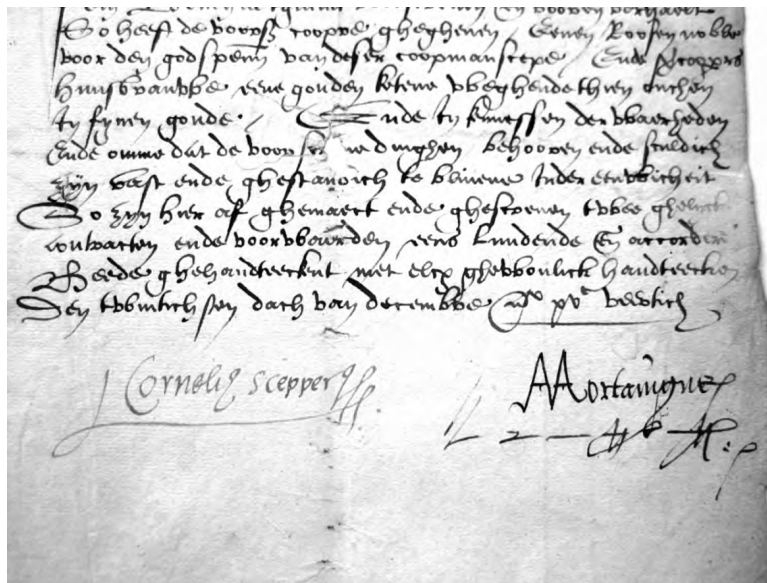 So heeft de voorsz coopre ghegheven / Eenen Roosen noble
voor den godspenn van deser coopmanscepe / Ende
huusvrauwe eene gouden ketene weghende thien oncen
In fynen goude / Ende In kennessen der waerheden
Ende omme dat de voorsz dinghen behooren ende sculdich
zyn vast ende ghestandich te blivene Inder eeuwicheit
So zyn hier af ghemaect ende ghescreven twee
contracten ende voorwaerden eens ludende En accorderen
Beede ghehandteeckent met elcx ghewoonlick handteecken
Den twintichsten dach van decembre a° xv° veertich
Cornelis Scepper
Mortaingne